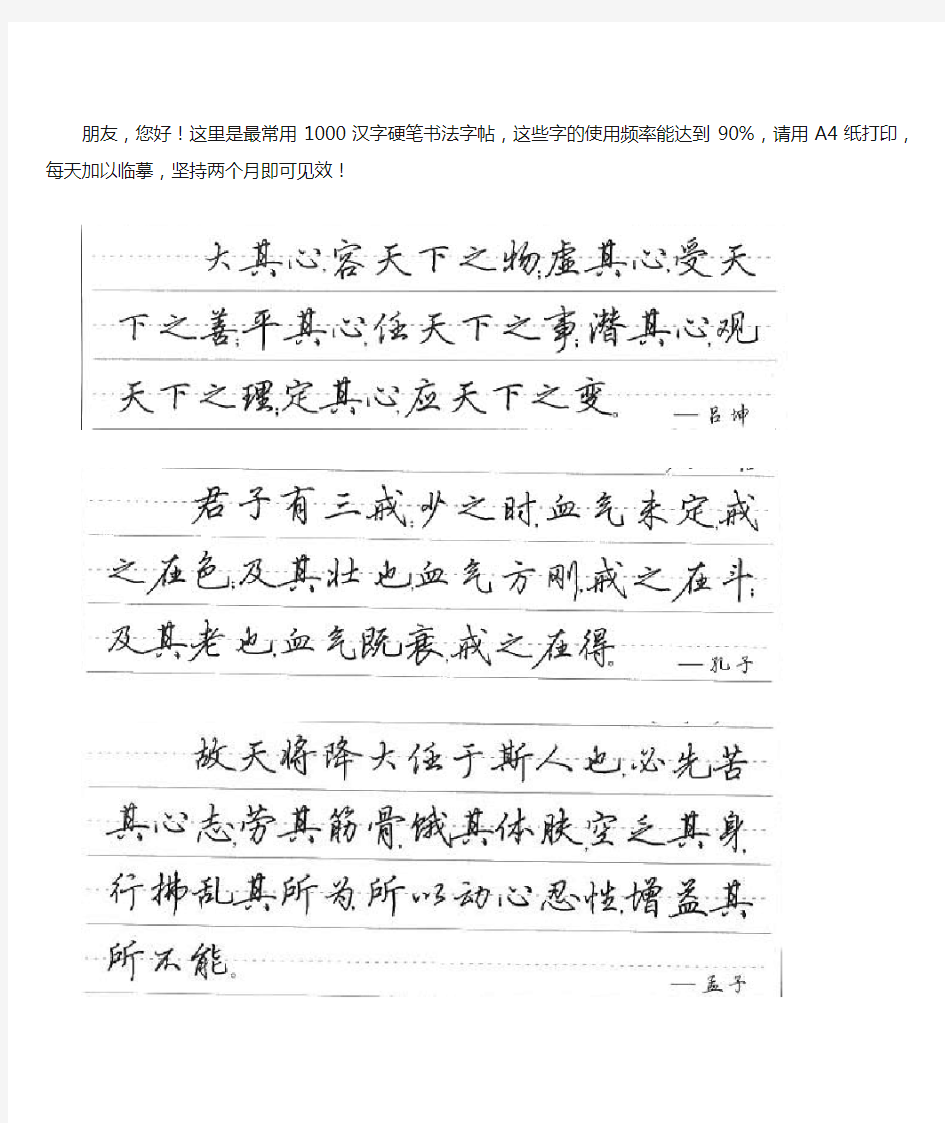 朋友，您好！这里是最常用 1000 汉字硬笔书法字帖，这些字的使用频率能达到 90%，请用 A4 纸打印，
每天加以临摹，坚持两个月即可见效！
大其心,容天下之物;虚其心,受天
下之善;平其心,任天下之事;潜其心,观
天下之理;定其心,应天下之变。
—吕坤
君子有三戒:少之时,血气未定,戒
之在色;及其壮也,血气方刚,戒之在斗;
及其老也,血气既衰,戒之在得。
—孔子
故天将降大任于斯人也,必先苦
其心志,劳其筋骨,饿其体肤,空乏其身,
行拂乱其所为,所以动心忍性,增益其
所不能。
—孟子